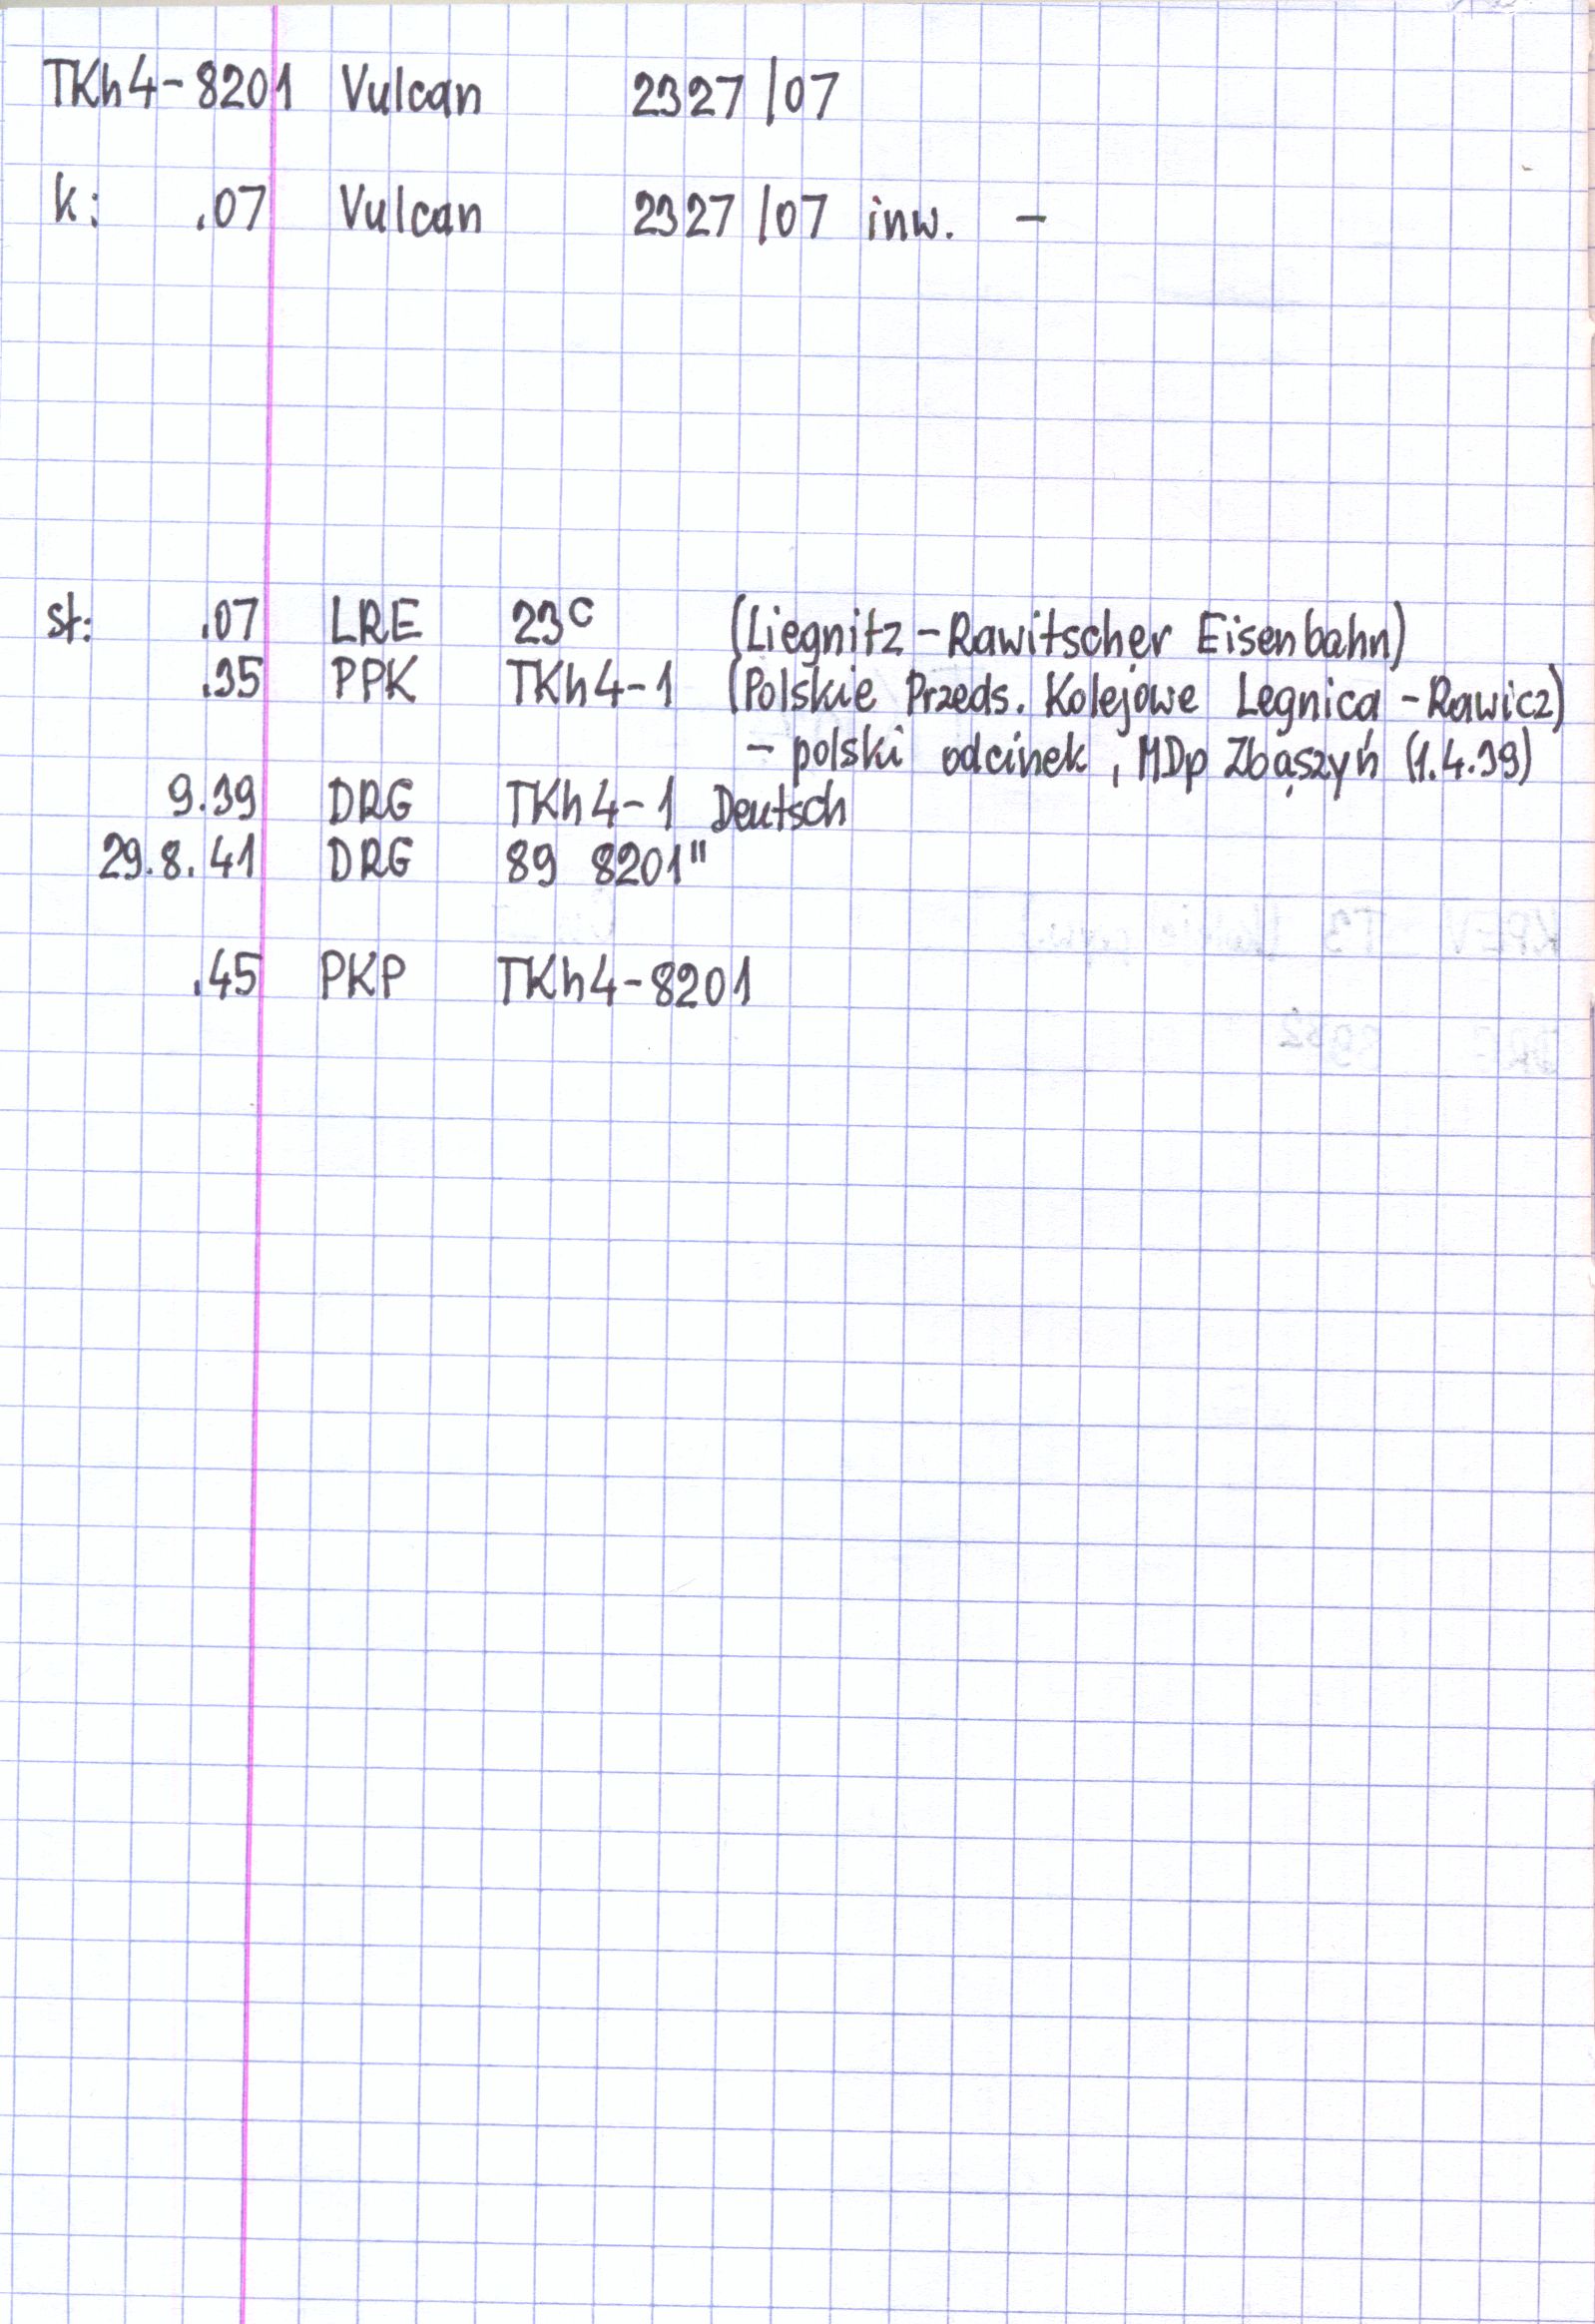 TKh4-8201 Vulcan 2327/07
k: .07 Vulcan 2327/07 inw. –
st: .07 LRE 23c (Liegnitz-Rawitscher Eisenbahn)
.35 PPK TKh4-1 (Polskie Przeds. Kolejowe Legnica-Rawicz)
– polski odcinek, MDp Zbąszyń (1.4.39)
9.39 DRG TKh4-1 Deutsch
29.8.41 DRG 89 8201"
.45 PKP TKh4-8201